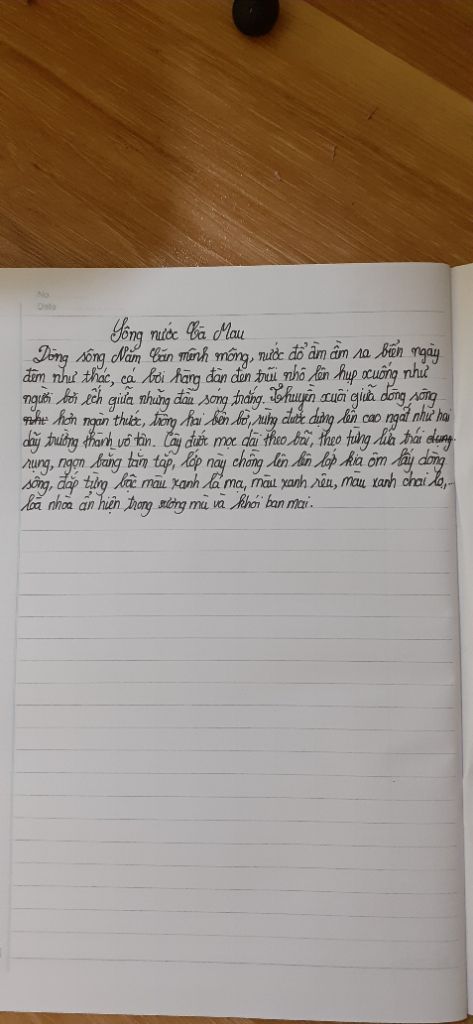 No.
Date
Sông nước Cà Mau
Dòng sông Năm Căn mênh mông, nước đổ ầm ầm ra biển ngày
đêm như thác, cá bơi hàng đàn đen trũi nhô lên hụp xuống như
người bơi ếch giữa những đầu sóng trắng. Thuyền xuôi giữa dòng sông
như hơn ngàn thước, trông hai bên bờ, rừng đước dựng lên cao ngất như hai
dãy trường thành vô tận. Cây đước mọc dài theo bãi, theo từng lứa trái dung
rụng, ngọn bằng tăm tắp, lớp này chồng lên lên lớp kia ôm lấy dòng
sông, đắp từng bậc màu xanh lá mạ, màu xanh rêu, màu xanh chai lọ,...
loà nhoà ẩn hiện trong sương mù và khói ban mai.